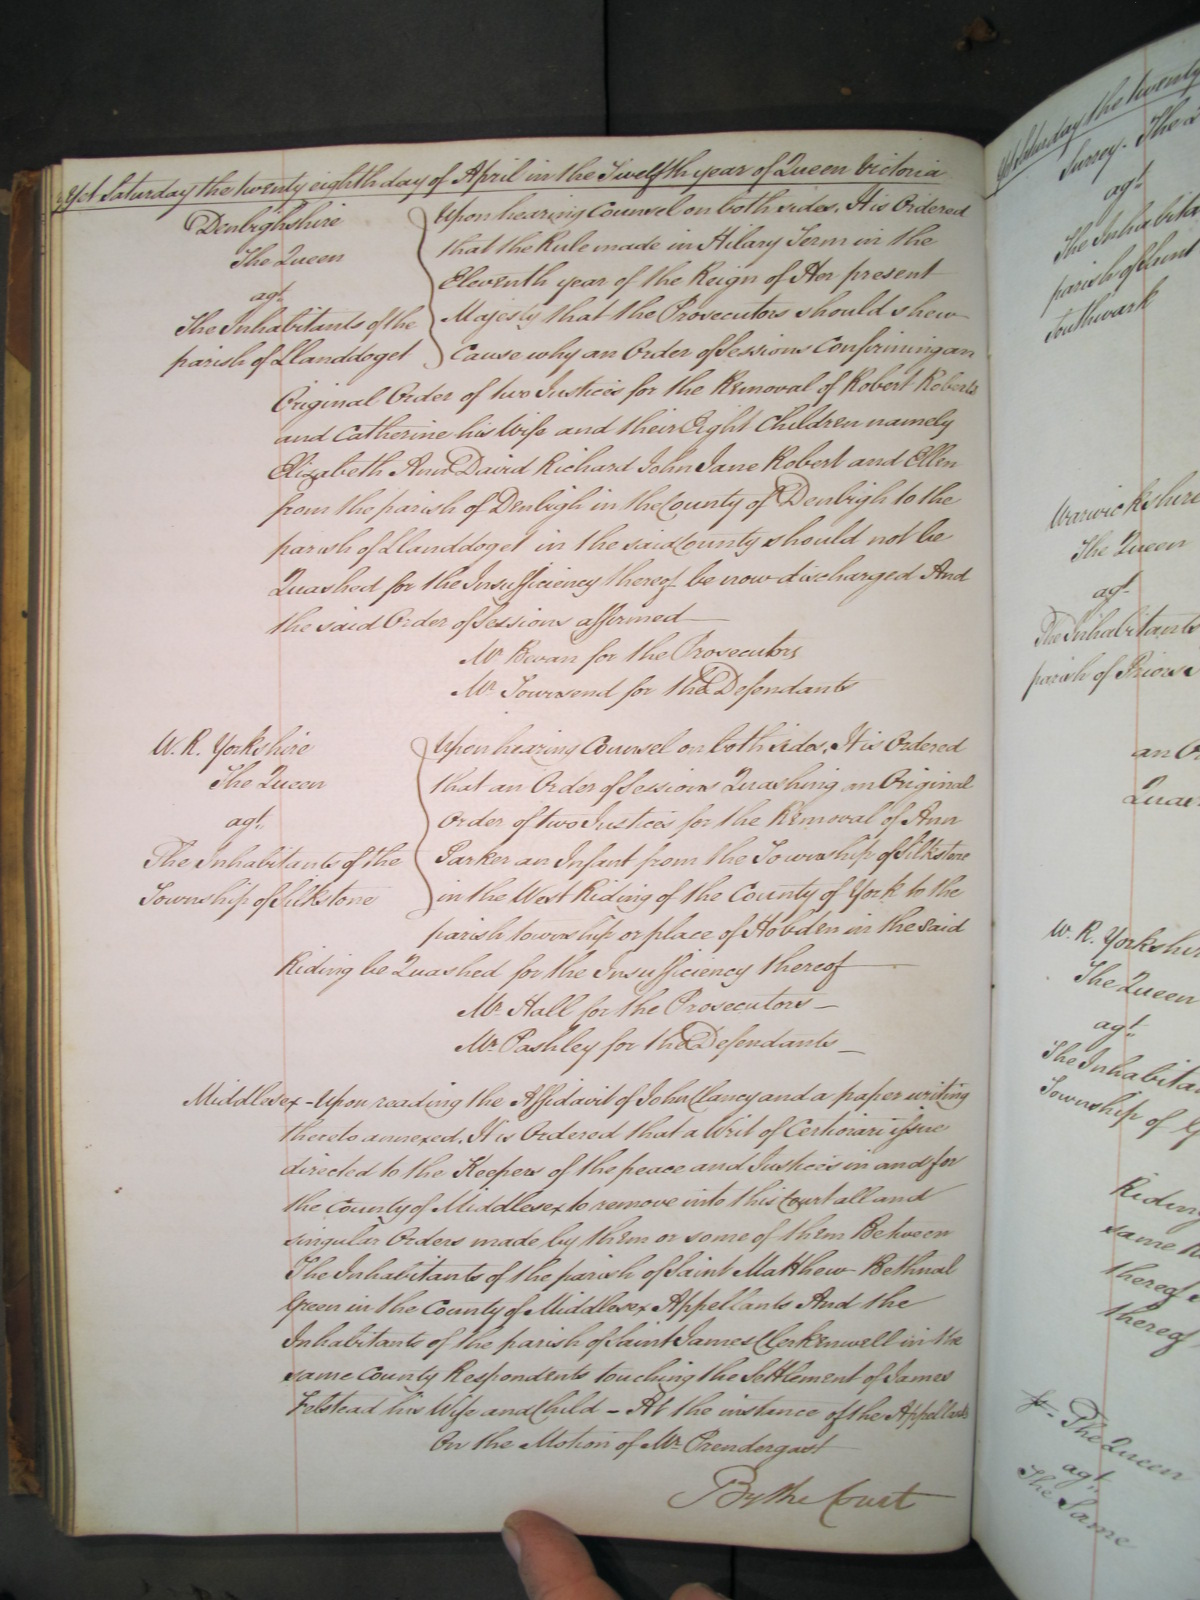 Yet Saturday the twenty eighth day of April in the Twelfth year of Queen Victoria
Denbighshire
The Queen
agt.
The Inhabitants of the
parish of Llanddoget
Upon hearing Counsel on both sides, It is Ordered
that the Rule made in Hilary Term in the
Eleventh year of the Reign of Her present
Majesty that the Prosecutors should shew
Cause why an Order of Sessions Confirming an
Original Order of two Justices for the Removal of Robert Roberts
and Catherine his Wife and their Eight Children namely
Elizabeth Ann David Richard John Jane Robert and Ellen
from the parish of Denbigh in the County of Denbigh to the
parish of Llanddoget in the said County should not be
Quashed for the Insufficiency thereof be now discharged And
the said Order of Sessions affirmed
Mr. Bevan for the Prosecutors
Mr. Townsend for the Defendants
W. R. Yorkshire
The Queen
agt.
The Inhabitants of the
Township of Silkstone
Upon hearing Counsel on both sides, It is Ordered
that an Order of Sessions Quashing an Original
Order of two Justices for the Removal of Ann
Parker an Infant from the Township of Silkstone
in the West Riding of the County of York to the
parish township or place of in the said
Riding be Quashed for the Insufficiency thereof
Mr. Hall for the Prosecutors
Mr. Pashley for the Defendants
Middlesex - Upon reading the Affidavit of John Clancy and a paper writing
thereto annexed, It is Ordered that a Writ of Certiorari issue
directed to the Keepers of the peace and Justices in and for
the County of Middlesex to remove into this Court all and
singular Orders made by them or some of them Between
The Inhabitants of the parish of Saint Matthew Bethnal
Green in the County of Middlesex Appellants And the
Inhabitants of the parish of Saint James Clerkenwell in the
same County Respondents touching the Settlement of James
Felstead his Wife and Child - At the instance of the Appellants
On the Motion of Mr. Prendergast
By the Court
Saturday the twenty
Surrey - The
agt.
The Inhabita
parish of Saint
Southwark
Warwickshire
The Queen
agt.
The Inhabitants
parish of
an O
Quas
W. R. Yorkshi
The Queen
agt.
The Inhabitan
Township of
Riding
same
thereof
thereof
The Queen
agt.
The Same